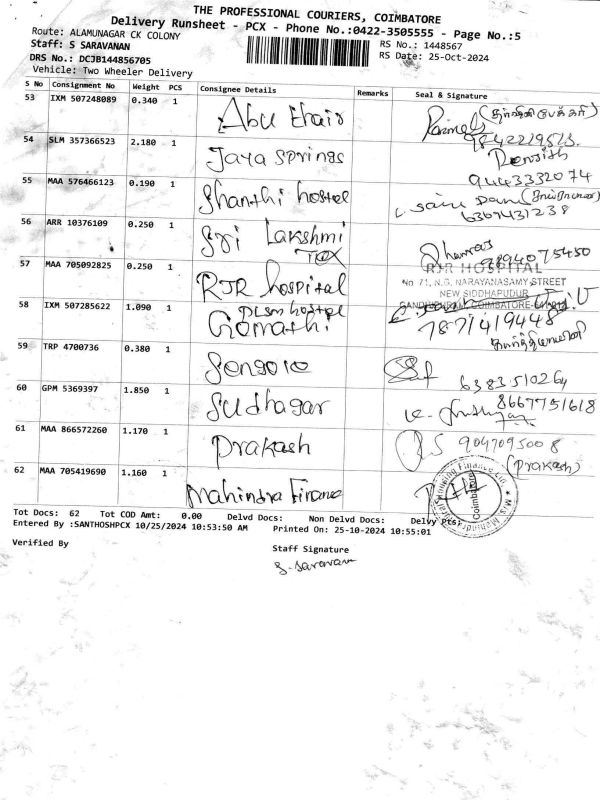 THE PROFESSIONAL COURIERS, COIMBATORE
Delivery Runsheet - PCX - Phone No.:0422-3505555 - Page No.:5
Route: ALAMUNAGAR CK COLONY
Staff: S SARAVANAN
RS No.: 1448567
DRS No.: DCJB144856705
RS Date: 25-Oct-2024
Vehicle: Two Wheeler Delivery
S No Consignment No Weight PCS Consignee Details Remarks Seal & Signature
53 IXM 507248089 0.340 1 Abu Ehair
9842229523
54 SLM 357366523 2.180 1 Jaya Springs Renjith
9443332074
55 MAA 576466123 0.190 1 Shanthi hostel
6369431238
56 ARR 10376109 0.250 1 Sri Lakshmi Tex
9894075450
57 MAA 705092825 0.250 1 RJR hospital
RJR HOSPITAL
No 71, N.G. NARAYANASAMY STREET
NEW SIDDHAPUDUR
58 IXM 507285622 1.090 1 DLSM hostel
Gomathi
7871419448
59 TRP 4700736 0.380 1
6383510264
60 GPM 5369397 1.850 1 Sudhagar 8667751618
61 MAA 866572260 1.170 1 Prakash 9047095008
(Prakash)
62 MAA 705419690 1.160 1 Mahindra Finance
Coimbatore
Tot Docs: 62 Tot COD Amt: 0.00 Delvd Docs: Non Delvd Docs: Delvy Pts:
Entered By :SANTHOSHPCX 10/25/2024 10:53:50 AM Printed On: 25-10-2024 10:55:01
Verified By Staff Signature
S. Saravanan